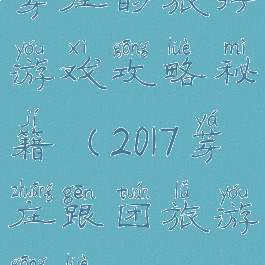 芽庄的旅行
yóu xì gōng lüè mì
游戏攻略秘
jí yá
籍(2017芽
zhuāng gēn tuán lǚ yóu
庄跟团旅游
gōng lüè